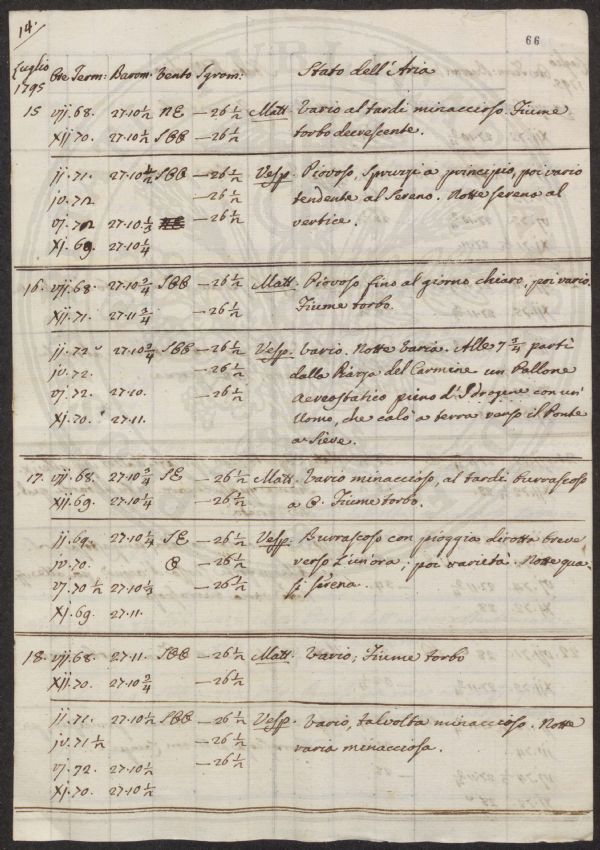 14.
66
Luglio 1795 Ore Term: Barom. Vento Igrom: Stato dell'Aria
15 vij. 68. 27.10 1/2 NE — 26 1/2 Matt. Vario al tardi minaccioso. Fiume
Xij 70. 27.10 1/2 SOO — 26 1/2 torbo decrescente.
ij. 71. 27.10 1/2 SOO — 26 1/2 Vesp. Piovoso, spruzzi a principio, poi vario
jv. 72 — 26 1/2 tendente al Sereno. Notte serena al
vj. 72 27.10 1/3 — 26 1/2 vertice.
Xj. 69. 27.10 1/4
16. vij. 68. 27.10 3/4 SOO — 26 1/2 Matt. Piovoso fino al giorno chiaro, poi vario.
Xij. 71. 27.11 3/4 — 26 1/2 Fiume torbo.
ij. 72 27.10 3/4 SOO — 26 1/2 Vesp. Vario. Notte varia. Alle 7 3/4 partì
jv. 72. — 26 1/2 dalla Piazza del Carmine un Pallone
vj. 72. 27.10. — 26 1/2 Aereostatico pieno d'Idrogene con un'
Xj. 70. 27.11. Uomo, che calò a terra verso il Ponte
a Sieve.
17. vij. 68. 27.10 3/4 SE — 26 1/2 Matt. Vario minaccioso, al tardi burrascoso
Xij. 69. 27.10 1/4 — 26 1/2 a O. Fiume torbo.
ij. 69. 27.10 1/4 SE — 26 1/2 Vesp. Burrascoso con pioggia dirotta breve
jv. 70. O — 26 1/2 verso l'un'ora, poi varietà. Notte qua-
vj. 70 1/2 27.10 1/2 — 26 1/2 si serena.
Xj. 69. 27.11.
18. vij. 68. 27.11 SOO — 26 1/2 Matt. Vario; Fiume torbo
Xij. 70. 27.10 3/4 — 26 1/2
ij. 71. 27.10 1/2 SOO — 26 1/2 Vesp. Vario, talvolta minaccioso. Notte
jv. 71 1/2 — 26 1/2 varia minacciosa.
vj. 72 27.10 1/2 — 26 1/2
Xj. 70. 27.10 1/2